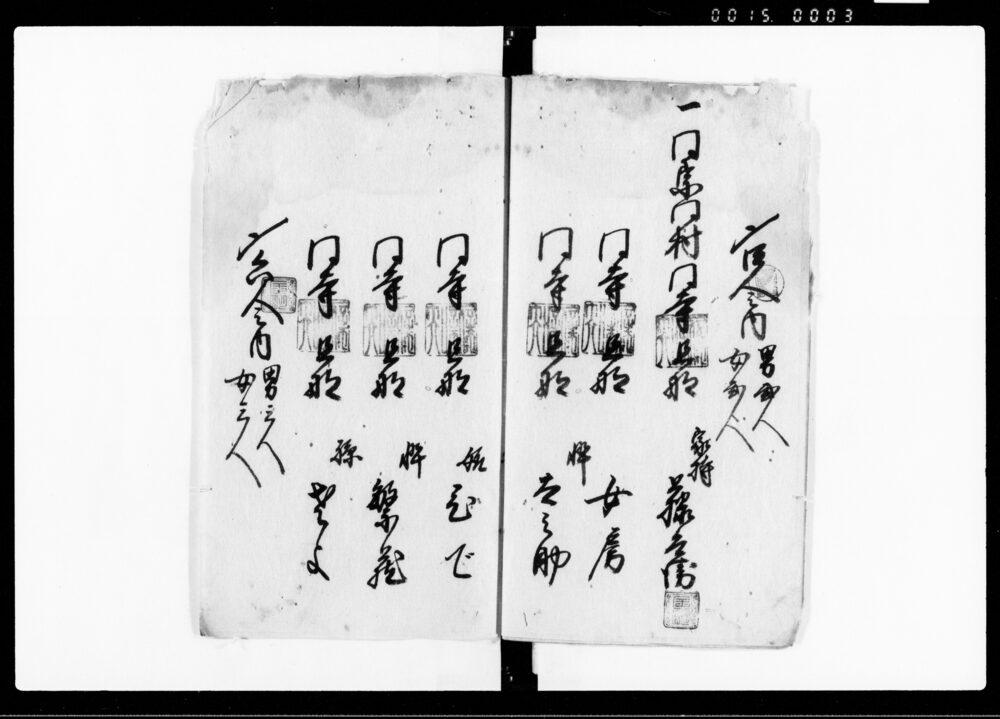 0015. 0003
〆四人之内
男弐人
女弐人
一同宗同村同寺旦那
家持
藤兵衛
同寺旦那
女房
同寺旦那
忰
吉之助
同寺旦那
同寺旦那
忰
繁蔵
同寺旦那
孫
〆六人之内
男三人
女三人